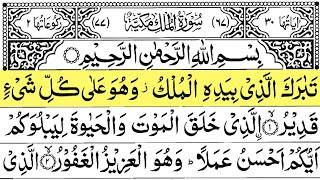 اٰیاتها ۳۰ (۶۷) سُوْرَةُ الْمُلْكِ مَكِّیَّةٌ (۷۷) رکوعاتها ۲
بِسْمِ اللّٰهِ الرَّحْمٰنِ الرَّحِیْمِ
تَبٰرَكَ الَّذِیْ بِیَدِهِ الْمُلْكُ ز وَهُوَ عَلٰی كُلِّ شَیْءٍ
قَدِیْرُ ۙ ۱ الَّذِیْ خَلَقَ الْمَوْتَ وَالْحَیٰوةَ لِیَبْلُوَكُمْ
اَیُّكُمْ اَحْسَنُ عَمَلًا ؕ وَهُوَ الْعَزِیْزُ الْغَفُوْرُ ۙ ۲ الَّذِیْ